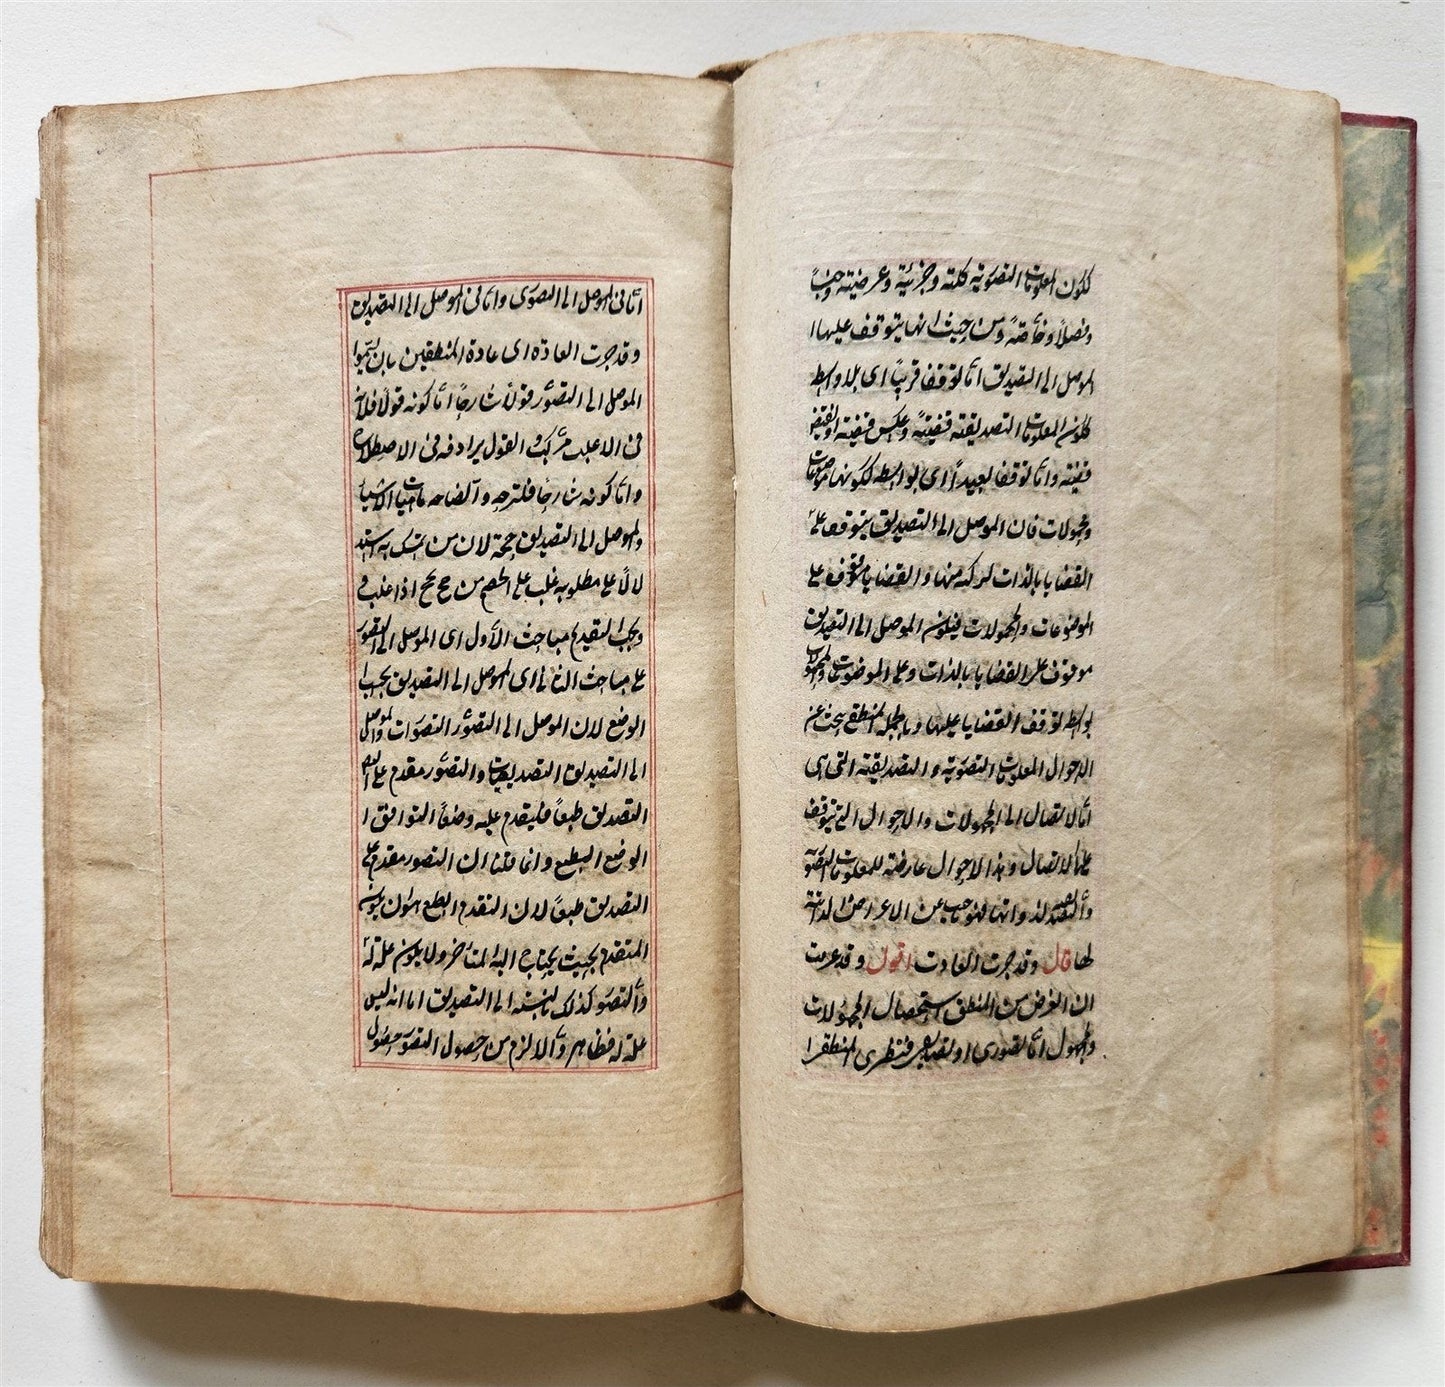 ككون المعلومات التصورية كلية وجزئية وعرضية وجنساً
وفصلاً وخاصةً ومن حيث انها يتوقف عليها ا
لموصل الى التصديق اما توقفا قريباً اى بلا واسطه
ككون المعلومات التصديقية قضيةً وعكس قضية او نقيض
قضية واما توقفا بعيداً اى بواسطه ككونها موضوعات
ومحمولات فان الموصل الى التصديق يتوقف على
القضايا بالذات لتركبه منها والقضايا موقوف على
الموضوعات والمحمولات فيكون الموصل الى التصديق
موقوف على القضايا بالذات وعلى الموضوعات والمحمولات
بواسطه توقف القضايا عليها وبالجمله المنطقى يبحث عن
احوال المعلومات التصورية والتصديقية التى هى
اما الايصال الى المجهولات والاحوال التى يتوقف
عليها الايصال وهذا الاحوال عارضة للمعلومات التصورية
والتصديقية لذواتها فهو باحث عن الاعراض الذاتية
لها قال وقد جرت العادت اقول وقد عرفت
ان الغرض من المنطق استحصال المجهولات
والمجهول اما تصورى او تصديقى فنظرى المنطقى ا
اما فى الموصل الى التصورى واما فى الموصل الى التصديق
وقد جرت العادة اى عادة المنطقيين بان يسموا
الموصل الى التصور قولاً شارحاً اما كونه قولا فلانه
فى الاغلب مركب والقول يرادفه فى الاصطلاح
واما كونه شارحا فلشرحه وايضاحه ماهيات الاشياء
والموصل الى التصديق حجة لان من تمسك به استد
لالا على مطلوبه غلب على الخصم من حج يحج اذا غلب
ويجب تقديم مباحث الاول اى الموصل الى التصور
على مباحث الثانى اى الموصل الى التصديق بحسب ا
لوضع لان الموصل الى التصور التصورات والموصل
الى التصديق التصديقات والتصور مقدم على
التصديق طبعاً فليقدم عليه وضعاً ليوافق ا
لوضع الطبع وانما قلنا ان التصور مقدم على
التصديق طبعاً لان التقدم الطبعى هو ان يكون
المتقدم بحيث يحتاج اليه المتأخر ولا يكون علة له
والتصور كذلك بالنسبة الى التصديق اما انه ليس
علة له فظاهر والا لزم من حصول التصور حصول